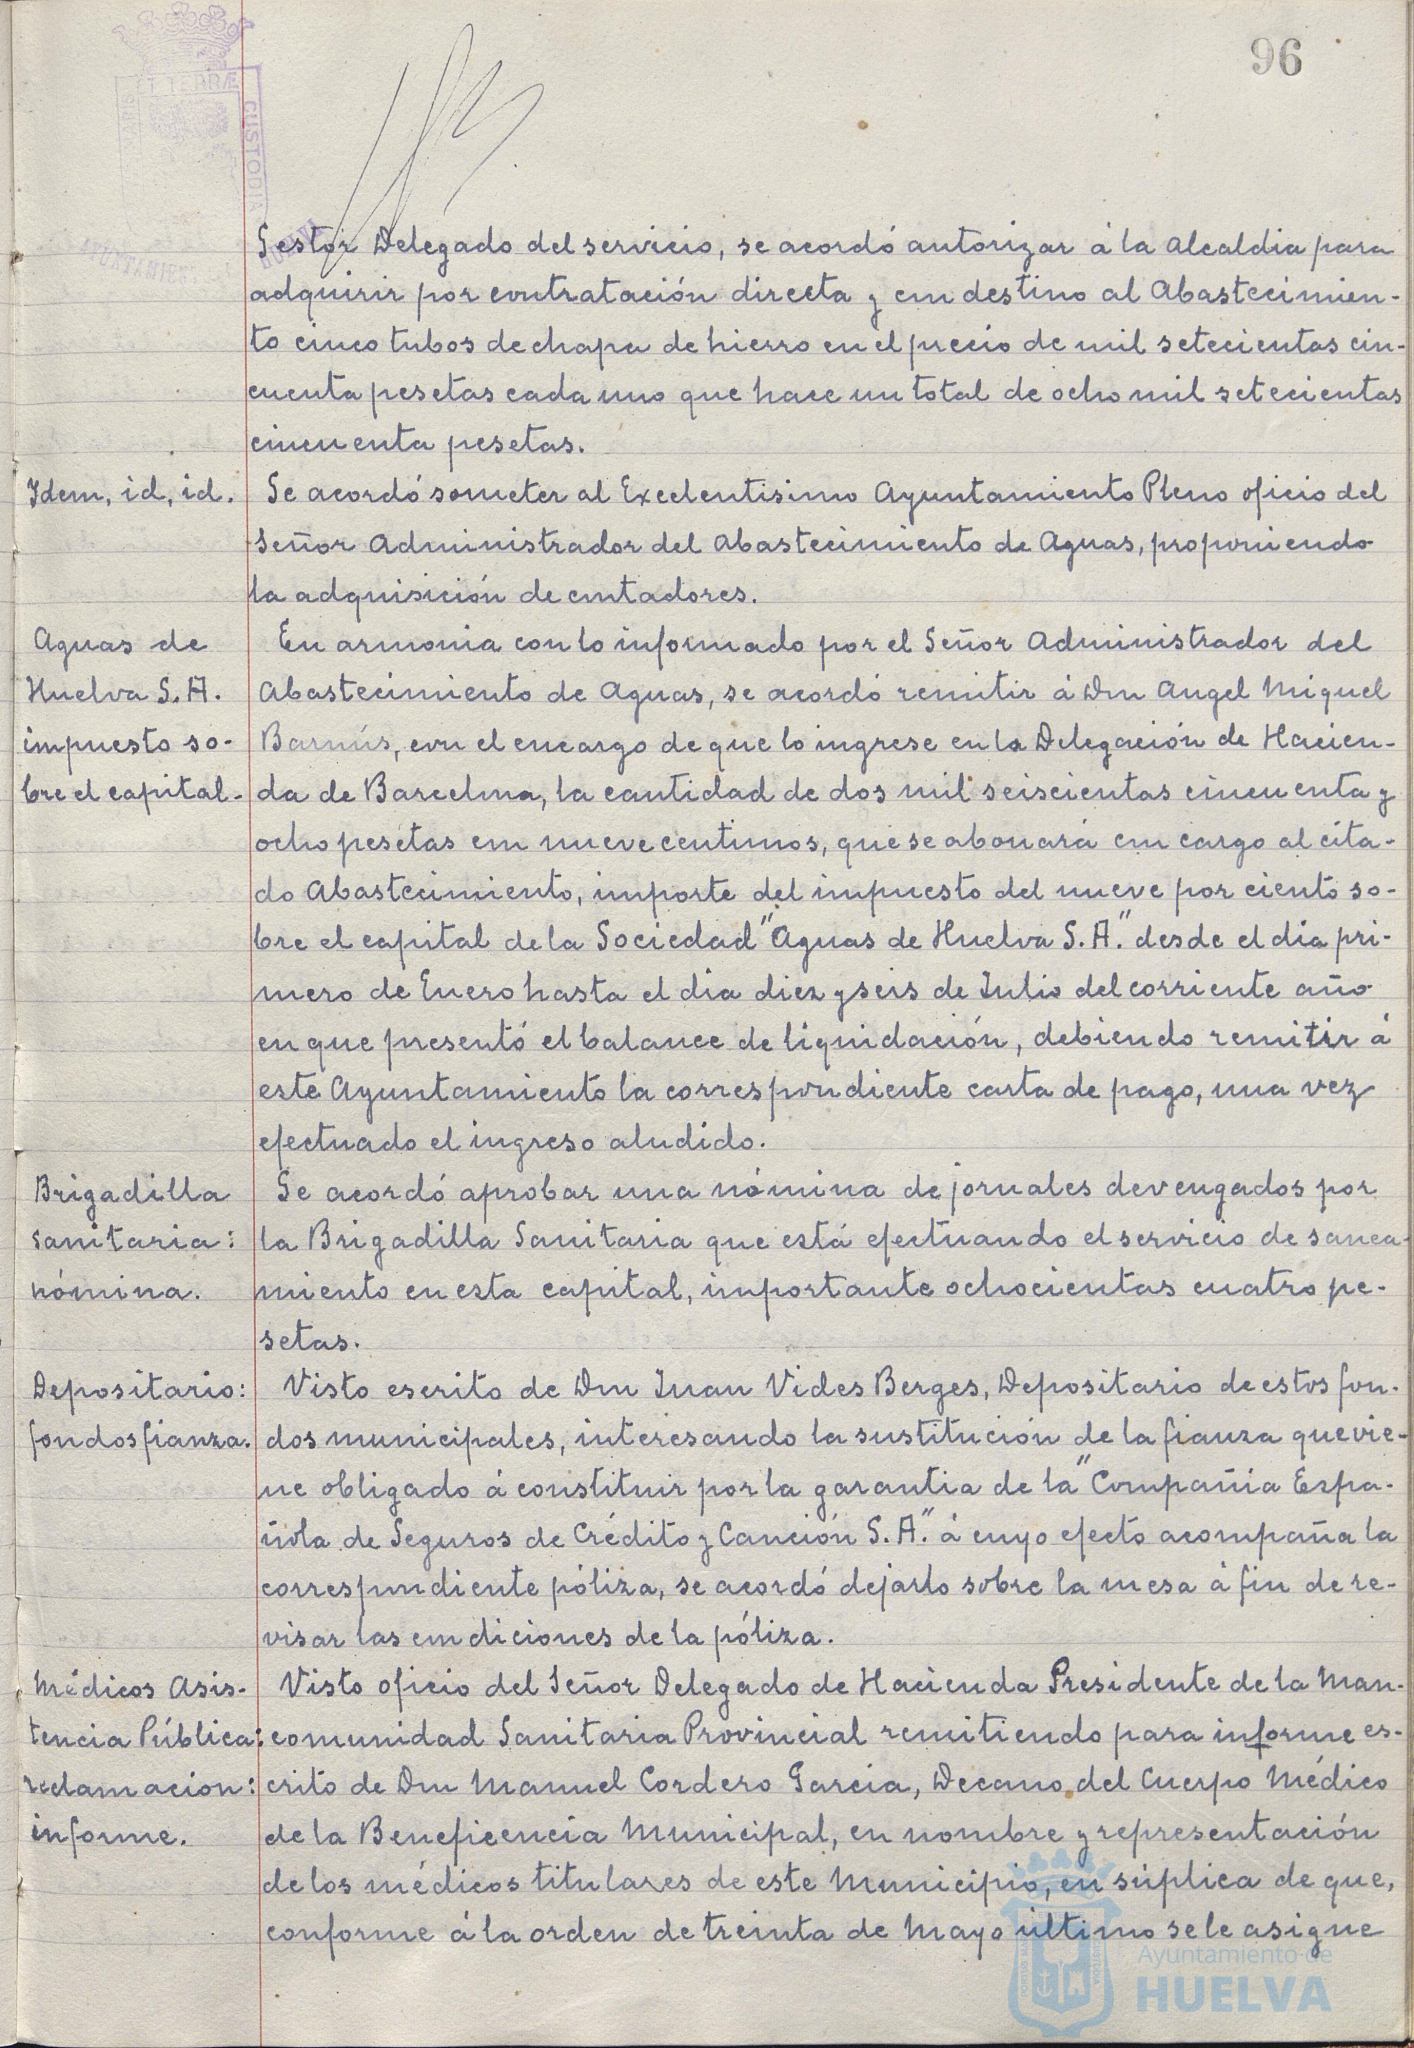 96
PORTUS MARIS ET TERRÆ CUSTODIA
AYUNTAMIENTO HUELVA
Gestor Delegado del servicio, se acordó autorizar á la Alcaldia para
adquirir por contratación directa y con destino al Abastecimien-
to cinco tubos de chapa de hierro en el precio de mil setecientas cin-
cuenta pesetas cada uno que hace un total de ocho mil setecientas
cincuenta pesetas.
Idem, id, id.
Se acordó someter al Excelentisimo Ayuntamiento Pleno oficio del
Señor Administrador del Abastecimiento de Aguas, proponiendo
la adquisición de contadores.
Aguas de
Huelva S.A.
impuesto so-
bre el capital.
En armonia con lo informado por el Señor Administrador del
Abastecimiento de Aguas, se acordó remitir á Don Angel Miguel
Barnús, con el encargo de que lo ingrese en la Delegación de Hacien-
da de Barcelona, la cantidad de dos mil seiscientas cincuenta y
ocho pesetas con nueve centimos, que se abonará con cargo al cita-
do Abastecimiento, importe del impuesto del nueve por ciento so-
bre el capital de la Sociedad "Aguas de Huelva S.A." desde el dia pri-
mero de Enero hasta el dia diez y seis de Julio del corriente año
en que presentó el balance de liquidación, debiendo remitir á
este Ayuntamiento la correspondiente carta de pago, una vez
efectuado el ingreso aludido.
Brigadilla
sanitaria:
nómina.
Se acordó aprobar una nómina de jornales devengados por
la Brigadilla Sanitaria que está efectuando el servicio de sanea-
miento en esta capital, importante ochocientas cuatro pe-
setas.
Depositario:
fondos fianza.
Visto escrito de Don Juan Vides Berges, Depositario de estos fon-
dos municipales, interesando la sustitución de la fianza que vie-
ne obligado á constituir por la garantia de la "Compañia Espa-
ñola de Seguros de Crédito y Caución S.A." á cuyo efecto acompaña la
correspondiente póliza, se acordó dejarlo sobre la mesa á fin de re-
visar las condiciones de la póliza.
Médicos Asis-
tencia Pública:
reclamación:
informe.
Visto oficio del Señor Delegado de Hacienda Presidente de la Man-
comunidad Sanitaria Provincial remitiendo para informe es-
crito de Don Manuel Cordero Garcia, Decano del Cuerpo Médico
de la Beneficencia Municipal, en nombre y representación
de los médicos titulares de este Municipio, en súplica de que,
conforme á la orden de treinta de Mayo último se le asigne
Ayuntamiento de
HUELVA